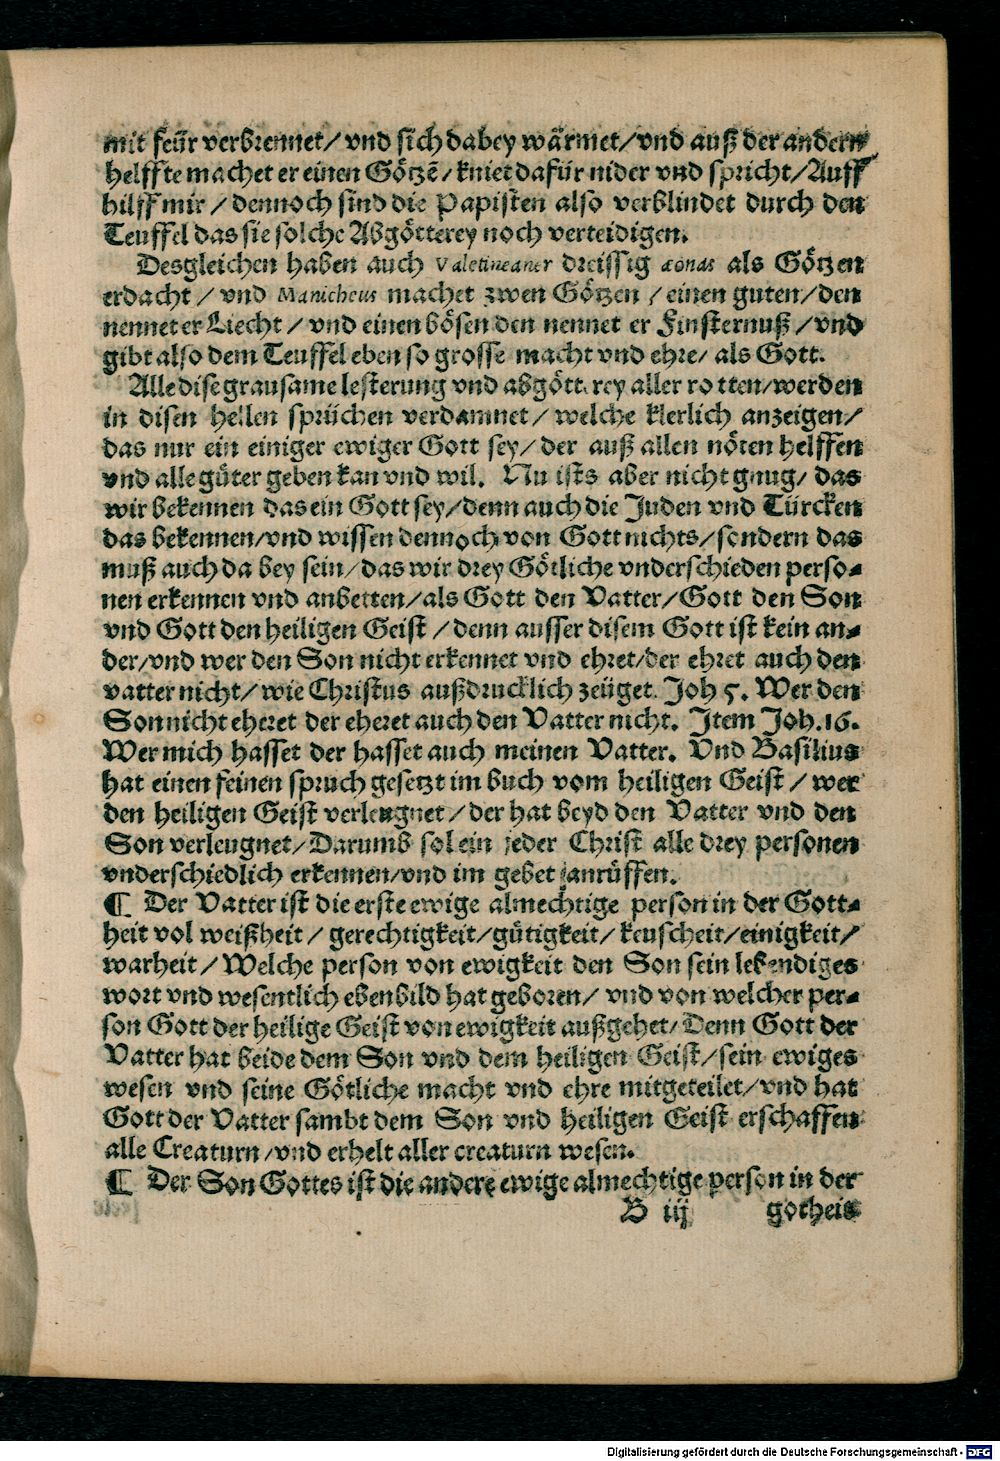 mit feür verbrennet/ vnd sich dabey wärmet/ vnd auß der andern
helffte machet er einen Götzē/ kniet dafür nider vnd spricht/ Auff
hilff mir/ dennoch sind die Papisten also verblindet durch den
Teuffel das sie solche Abgötterey noch verteidigen.
Desgleichen haben auch Valetineaner dreissig æonas als Götzen
erdacht/ vnd Manicheus machet zwen Götzen/ einen guten/ den
nennet er Liecht/ vnd einen bösen den nennet er Finsternuß/ vnd
gibt also dem Teuffel eben so grosse macht vnd ehre/ als Gott.
Alle dise grausame lesterung vnd abgötterey aller rotten/ werden
in disen hellen sprüchen verdamnet/ welche klerlich anzeigen/
das nur ein einiger ewiger Gott sey/ der auß allen nöten helffen
vnd alle güter geben kan vnd wil. Nu ists aber nicht gnug/ das
wir bekennen das ein Gott sey/ denn auch die Juden vnd Türcken
das bekennen/ vnd wissen dennoch von Gott nichts/ sondern das
muß auch da bey sein/ das wir drey Götliche vnderschieden perso-
nen erkennen vnd anbetten/ als Gott den Vatter/ Gott den Son
vnd Gott den heiligen Geist/ denn ausser disem Gott ist kein an-
der/ vnd wer den Son nicht erkennet vnd ehret/ der ehret auch den
vatter nicht/ wie Christus außdrucklich zeüget. Joh 5. Wer den
Son nicht eheret der eheret auch den Vatter nicht. Item Joh. 16.
Wer mich hasset der hasset auch meinen Vatter. Vnd Basilius
hat einen feinen spruch gesetzt im buch vom heiligen Geist/ wer
den heiligen Geist verleugnet/ der hat beyd den Vatter vnd den
Son verleugnet/ Darumb sol ein jeder Christ alle drey personen
vnderschiedlich erkennen/ vnd im gebet anrüffen.
¶ Der Vatter ist die erste ewige almechtige person in der Gott-
heit vol weißheit/ gerechtigkeit/ gütigkeit/ keuscheit/ einigkeit/
warheit/ Welche person von ewigkeit den Son sein lebendiges
wort vnd wesentlich ebenbild hat geboren/ vnd von welcher per-
son Gott der heilige Geist von ewigkeit außgehet/ Denn Gott der
Vatter hat beide dem Son vnd dem heiligen Geist/ sein ewiges
wesen vnd seine Götliche macht vnd ehre mitgeteilet/ vnd hat
Gott der Vatter sambt dem Son vnd heiligen Geist erschaffen
alle Creaturn/ vnd erhelt aller creaturn wesen.
¶ Der Son Gottes ist die andere ewige almechtige person in der
B iij gotheit
Digitalisierung gefördert durch die Deutsche Forschungsgemeinschaft - DFG